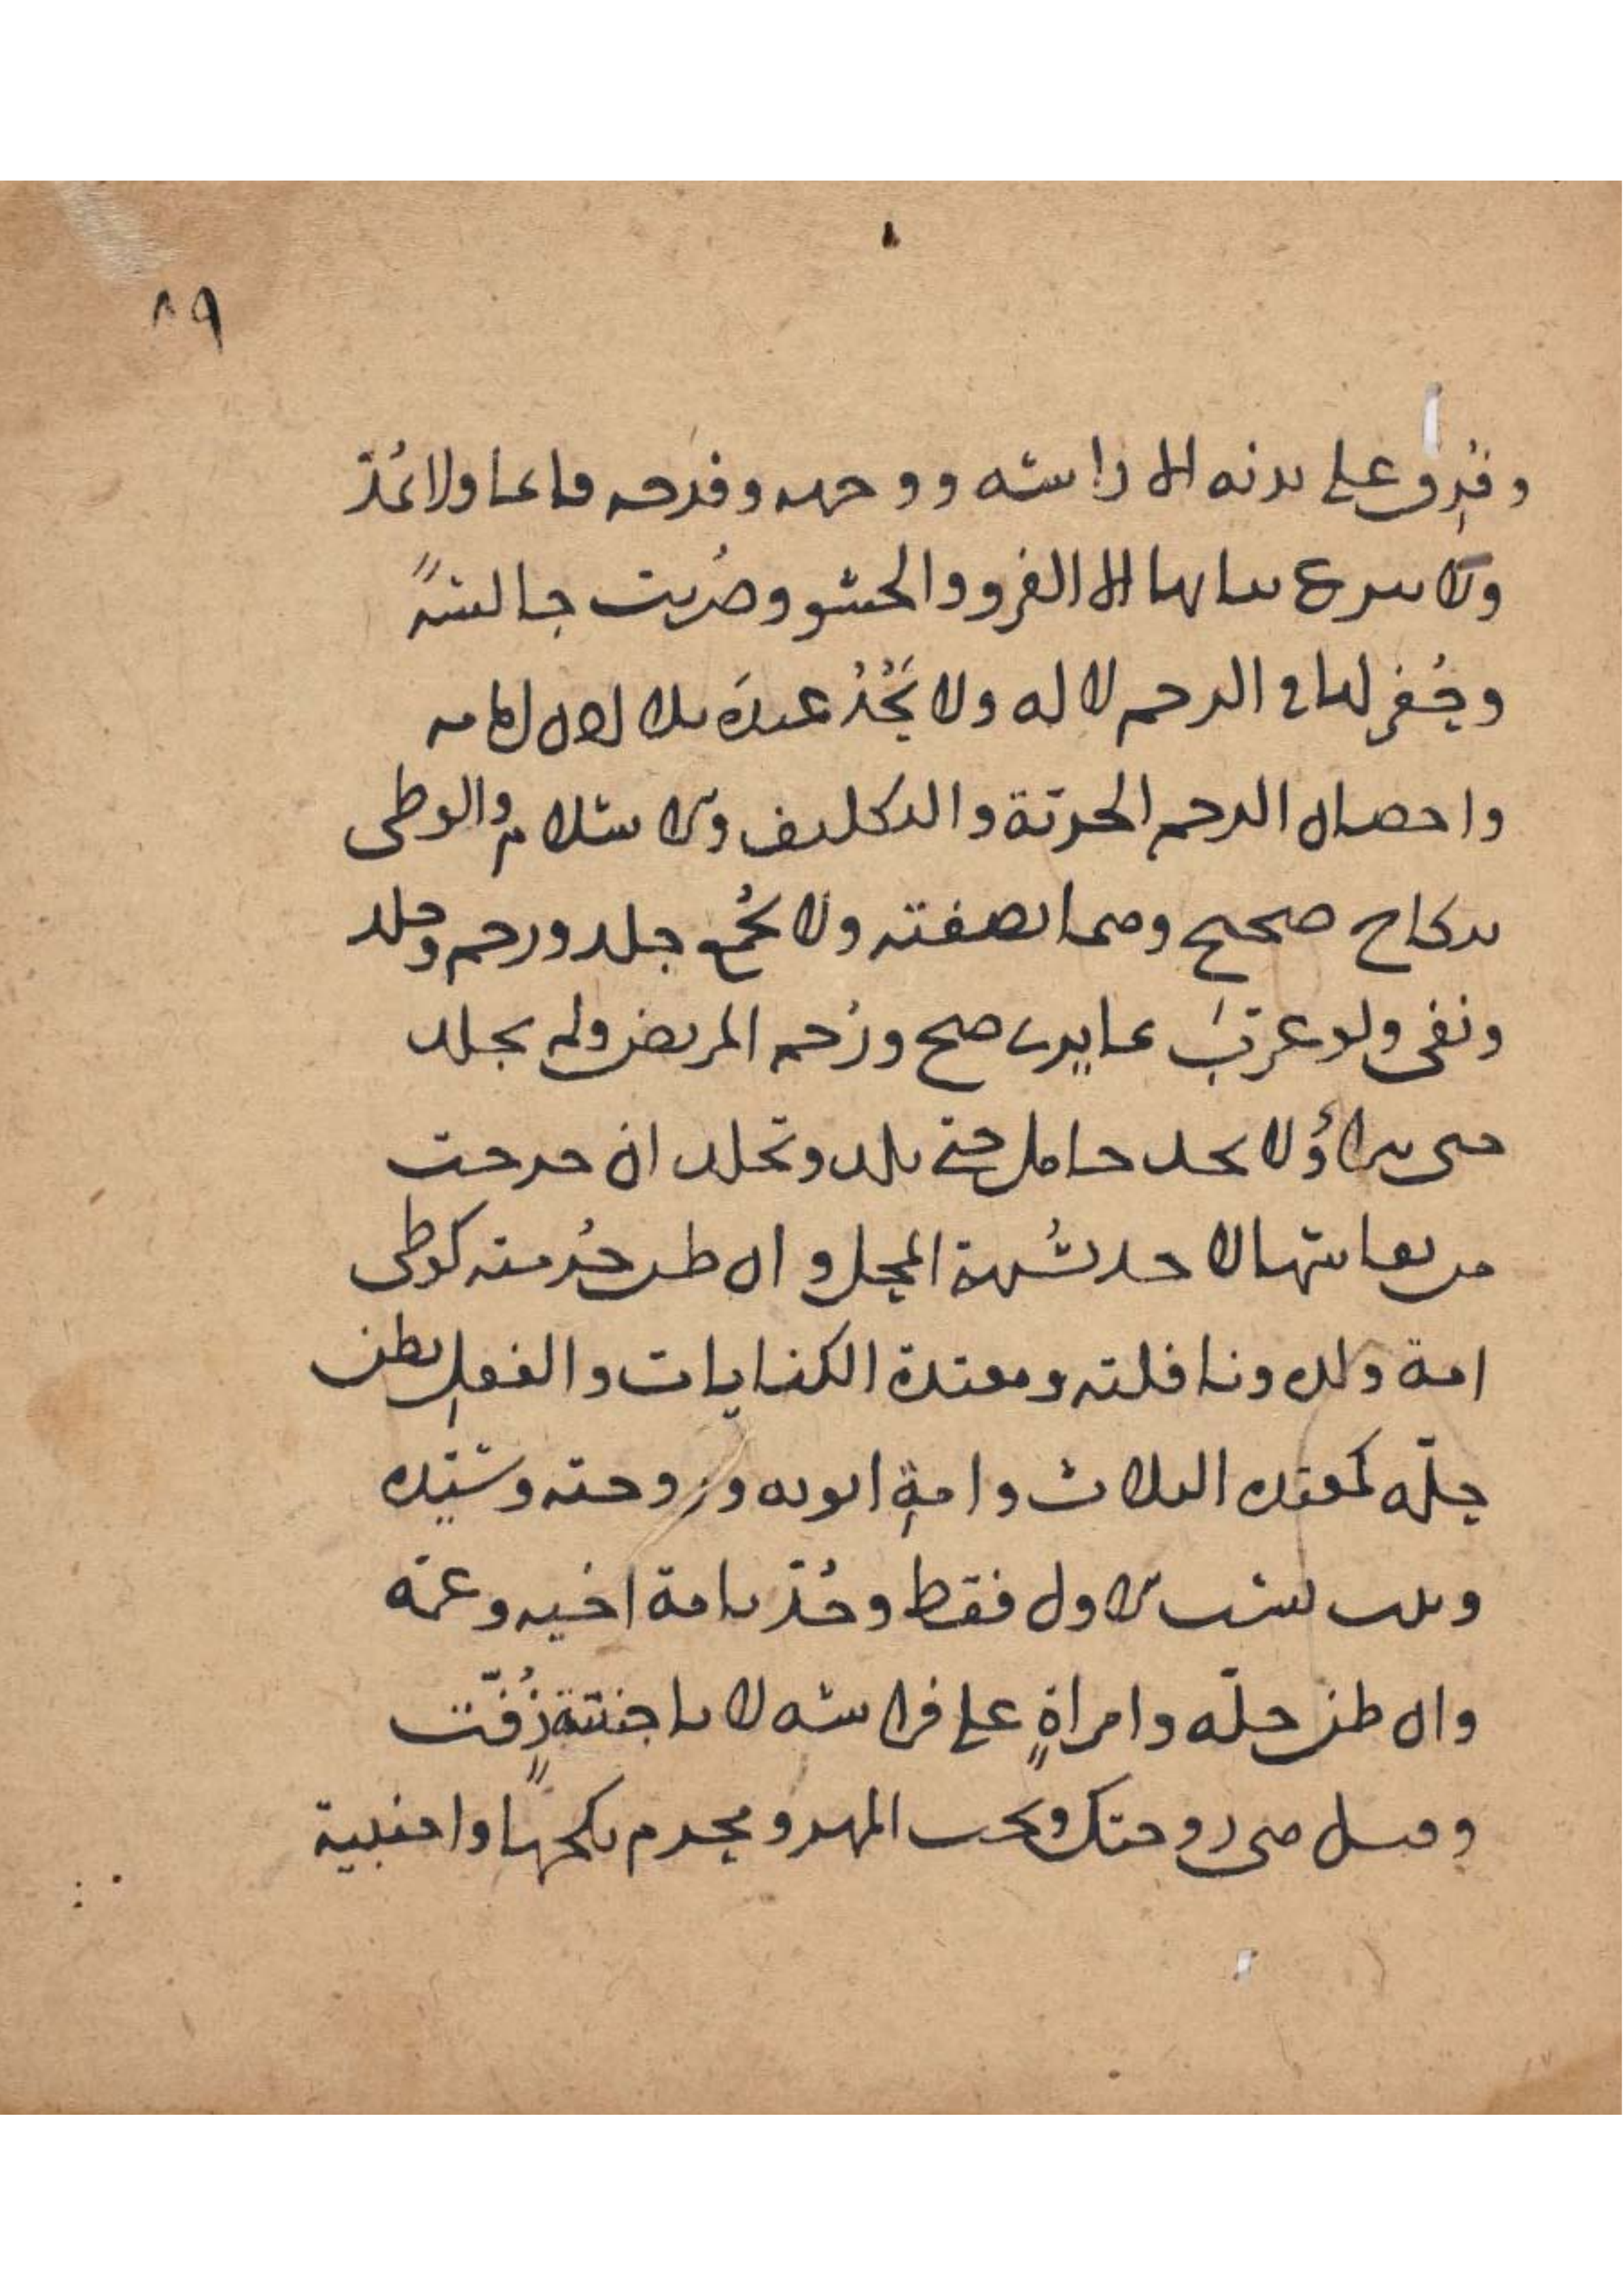 ٨٩
وفُرِق على بدنه الا راسه ووجهه وفرجه قائما ولا يُمَدّ
ولا ينزع ثيابها الا الفرو والحشو وضُربت جالسةً
وحُفر لها في الرجم لا له ولا يَحُدُّ عبدَه بلا اذن امامه
واحصان الرجم الحرية والتكليف والاسلام والوطى
بنكاح صحيح وهما بصفته ولا يُجمع جلد ورجم وجلد
ونفى ولو غرّبَ بما يرى صح ورُجم المريض ولم يجلد
حتى يبرأ ولا يحد حامل حتى تلد وتجلد ان خرجت
من نفاسها لا حد بشُبهة المحل وان ظن حُرمته كوطى
امة ولده ونافلته ومعتدة الكنايات والفعلِ بظن
حلّه كمعتدة الثلاث وامةِ ابويه وزوجته وسيّده
ويثبت نسب الاول فقط وحُدّ بامة اخيه وعمّه
وان ظن حلّه وامراةٍ على فراشه لا باجنبيةٍ زُفّت
وقيل هى زوجتك ويجب المهر ومحرم نكحها واجنبية